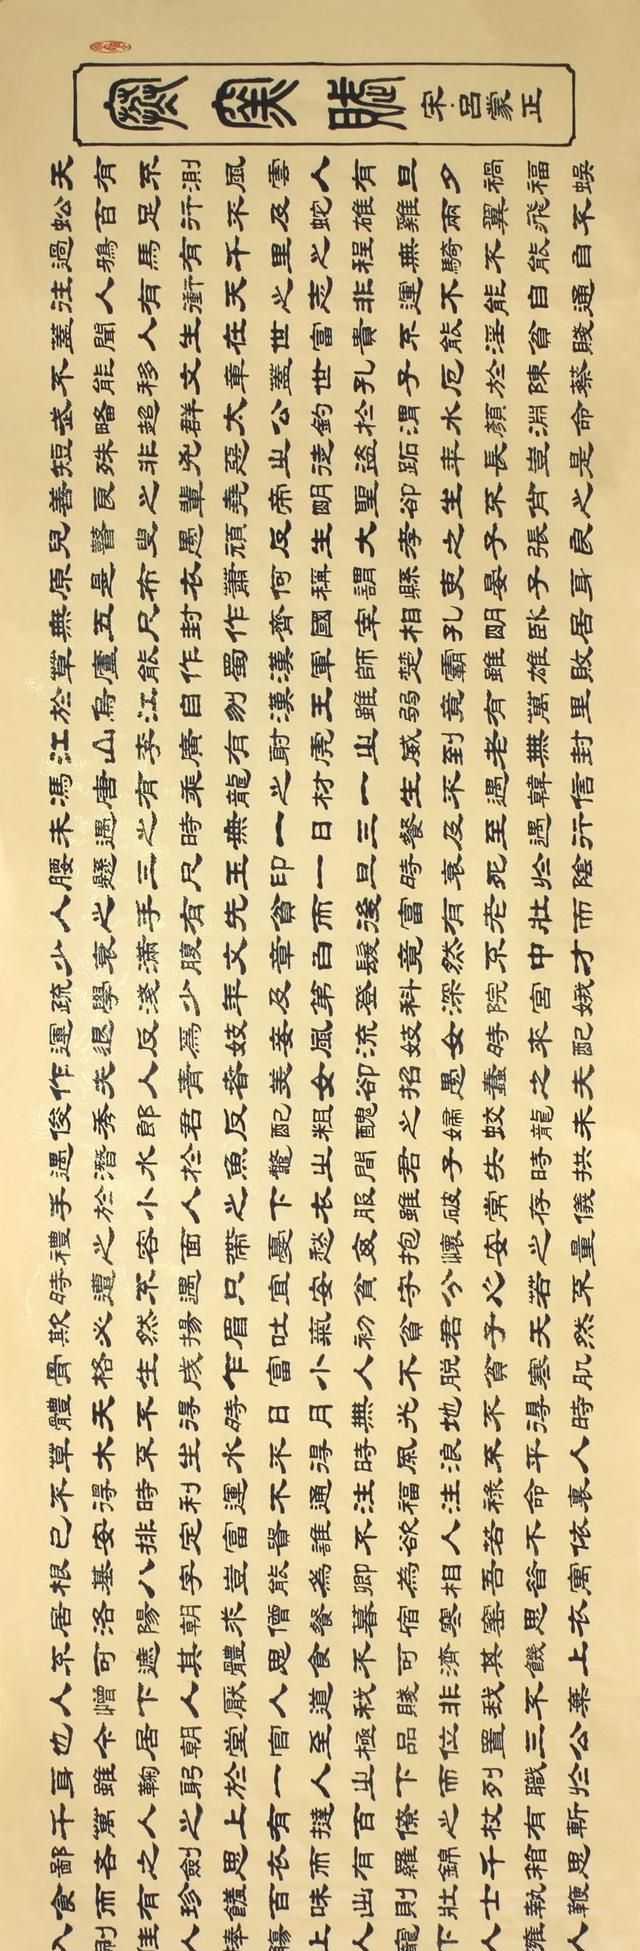 竆窯賦
宋呂蒙正
天有不測風雲人有旦夕禍福蜈
蚣百足行不及蛇雄雞兩翼飛不
過鴉馬有千里之程無騎不能自
注人有衝天之志非運不能自通
蓋聞人生在世富貴不能淫貧賤
不能移文章蓋世孔子厄於陳蔡
武略超群太公釣於渭水顏淵命
短殊非兇惡之徒盜跖年長豈是
善良之輩堯帝明聖卻生不肖之
兒瞽叟愚頑反生大孝之子張良
原是布衣蕭何稱謂縣吏晏子身
無五尺封作齊國宰相孔明臥居
草廬能作蜀漢軍師楚霸雖雄敗
於烏江自刎漢王雖弱竟有萬里
江山李廣有射虎之威到老無封
馮唐有乘龍之材一生不遇韓信
未遇時無一日三餐及至遇行
腰懸三尺王印一旦時衰死於陰
人之手有先貧而後富有老壯而
少衰滿腹文章白髮竟然不中才
疏學淺少年及第登科深院宮娥
運退反為妓妾風流妓女時來配
作夫人青春美女卻招愚蠢之夫
俊秀郎君反配粗醜之婦蛟龍未
遇潛水於魚鱉之間君子失時拱
手於小人之下衣服雖破常存儀
禮之容面帶憂愁安抱懷安之量
時遭不遇只宜安貧守兮心若不
欺必然揚眉吐氣初貧君子天然
骨格生歲乍富小人不脫貧寒肌
體天不得時日月無光地不得時
草木不生水不得時風浪不平人
不得時利運不通時福注命
已安排定富貴誰不欲人不依
根基八字豈能為卿為相吾昔寓
居洛陽朝求僧餐暮宿寒窯思衣
不可遮其體思食不可濟其饑上
人憎下人厭人道我賤非我不棄
也今居朝堂官至極品位置三公
身雖鞠躬於一人之下而列職於
千萬人之上有撻百僚之杖有斬
鄙吝之劍思衣而有羅錦千箱思
食而有珍饈百味出則壯士執鞭
入則佳人捧觴上人寵下人擁人